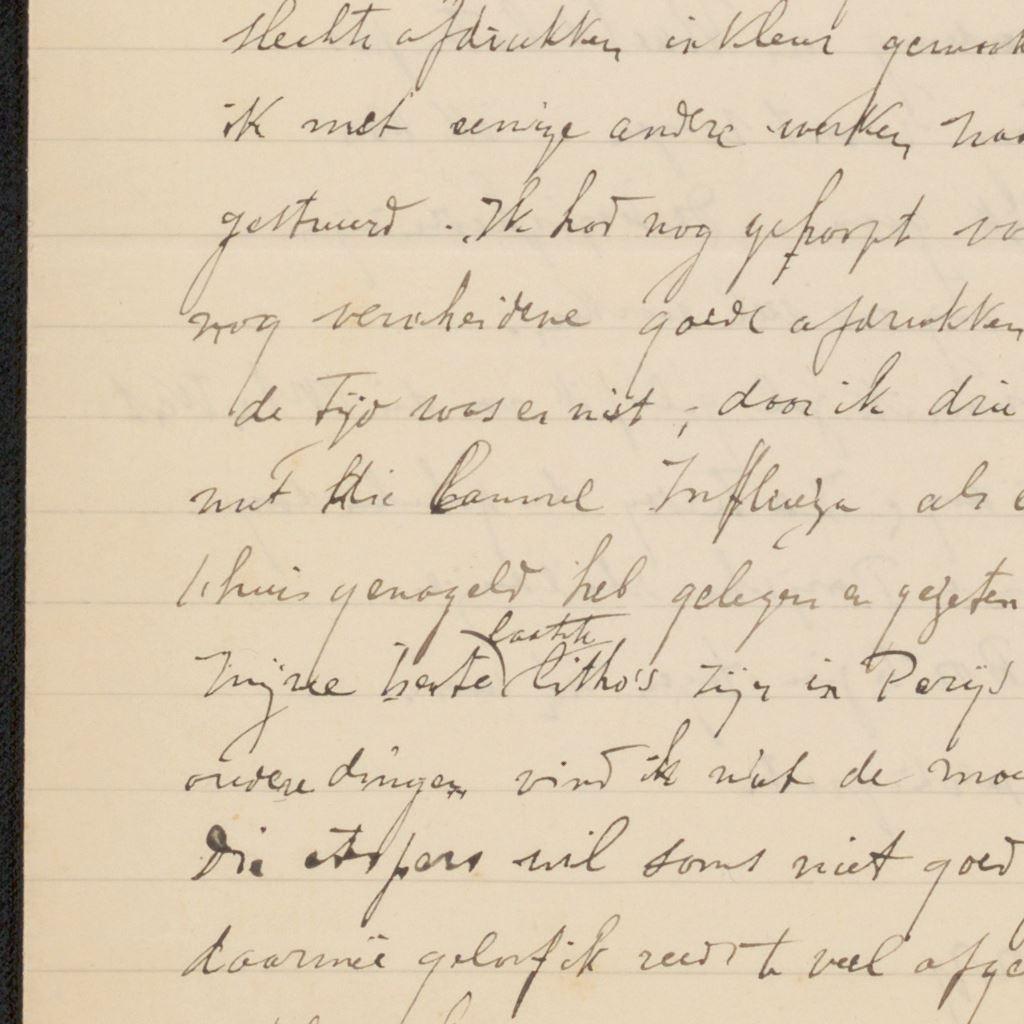 slechte afdrukken in kleur gemaak
ik met eenige andere werken naa
gestuurd. Ik had nog gehoopt vo
nog verscheidene goede afdrukken
de tijd was er niet, daar ik drie
met die Influenza als e
thuis genageld heb gelegen en gezeten
laatste
Mijne beste litho's zijn in Parijs
oudere dingen vind ik niet de moe
Die etspers wil soms niet goed
daarmeê geloof ik reeds te veel afge